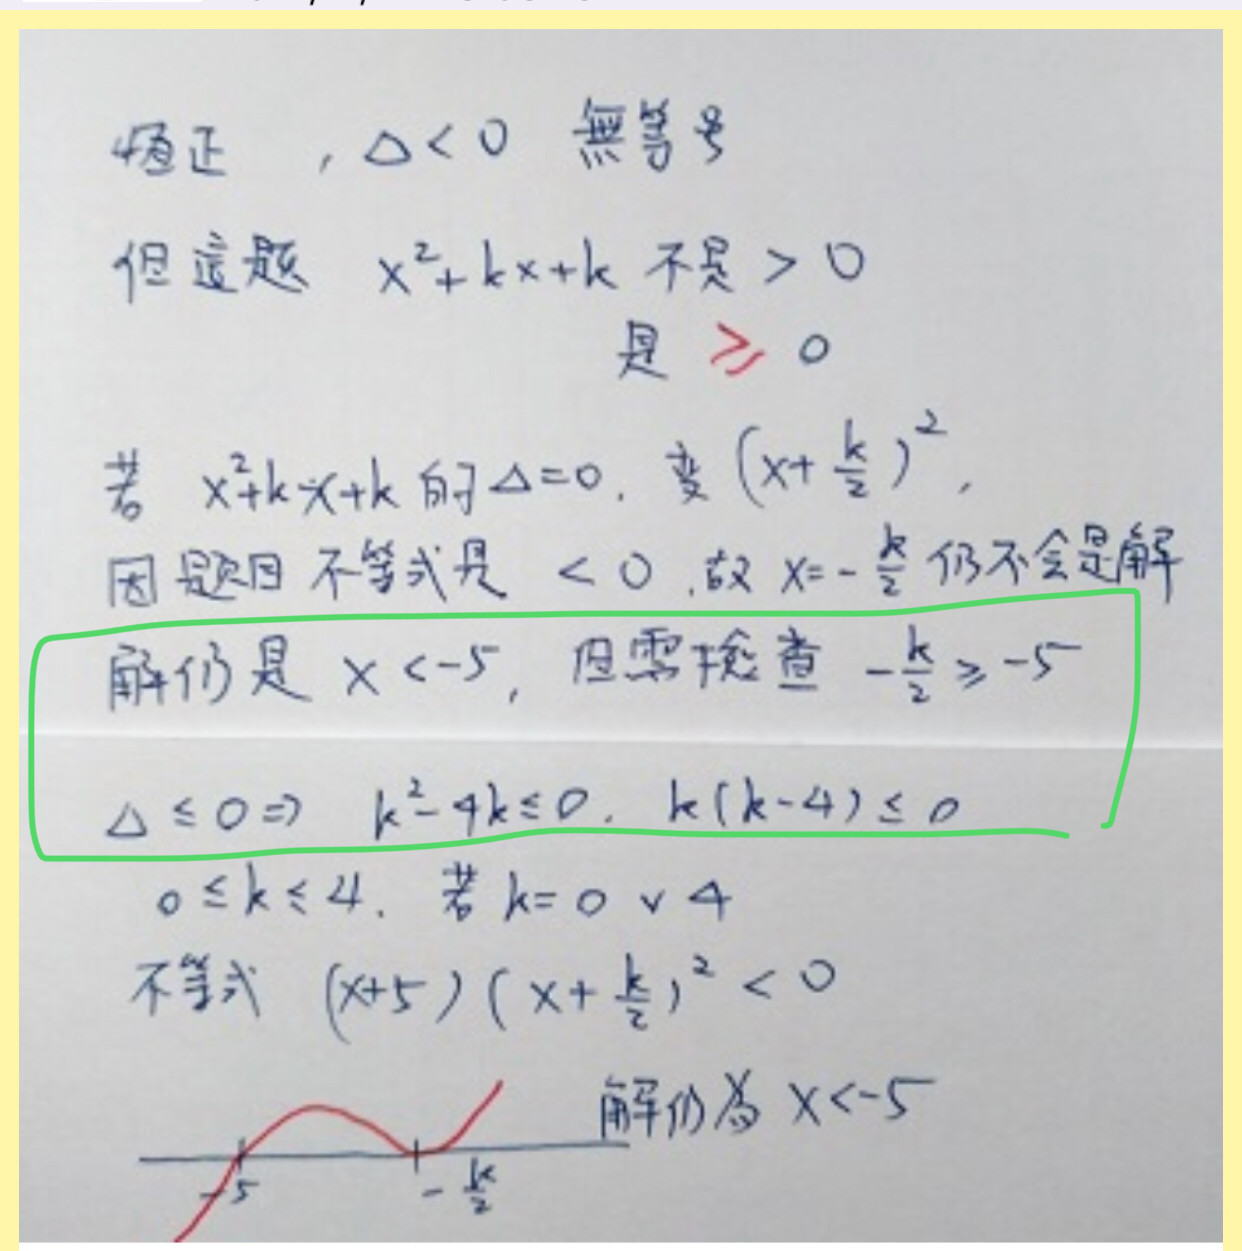 恒正 , △<0 無等号
但這題 x²+kx+k 不是 > 0
是 ≥ 0
若 x²+kx+k 的△=0. 變 (x+k/2)²,
因題目不等式是 <0 .故 x=-k/2 仍不会是解
解仍是 x<-5, 但需檢查 -k/2 ≥ -5
△≤0⇒ k²-4k≤0. k(k-4)≤0
0≤k≤4. 若 k=0 ∨ 4
不等式 (x+5)(x+k/2)²<0
解仍為 x<-5
-5 -k/2